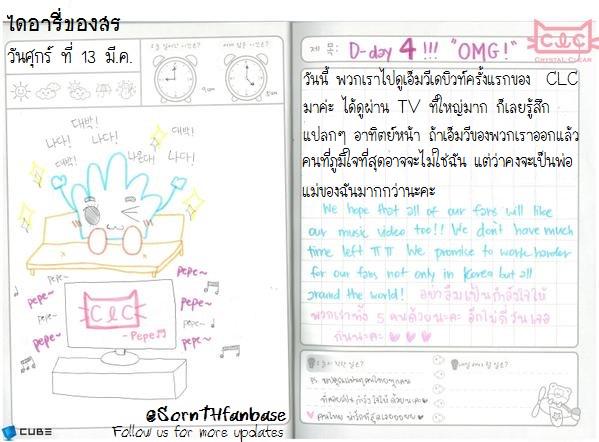 ไดอารี่ของสร
วันศุกร์ ที่ 13 มี.ค.
대박!
대박!
나다!
나다!
대박!
나온다!
나다!
pepe~
pepe~
pepe~
pepe~
pepe~
pepe~
pepe~
CLC
-Pepe♫
CUBE
@SornTHfanbase
Follow us for more updates
제 목: D-day 4!!! "OMG!"
CLC
CRYSTAL CLEAR
วันนี้ พวกเราไปดูเอ็มวีเดบิวท์ครั้งแรกของ CLC
มาค่ะ ได้ดูผ่าน TV ที่ใหญ่มาก ก็เลยรู้สึก
แปลกๆ อาทิตย์หน้า ถ้าเอ็มวีของพวกเราออกแล้ว
คนที่ภูมิใจที่สุดอาจจะไม่ใช่ฉัน แต่ว่าคงจะเป็นพ่อ
แม่ของฉันมากกว่านะคะ
We hope that all of our fans will like
our music video too!! We don't have much
time left ㅠㅠ We promise to work harder
for our fans not only in Korea but all
around the world! อย่าลืมเป็นกำลังใจให้
พวกเราทั้ง 5 คนด้วยนะคะ อีกไม่กี่วันเจอ
กันนะคะ ♥ ♥ ♥